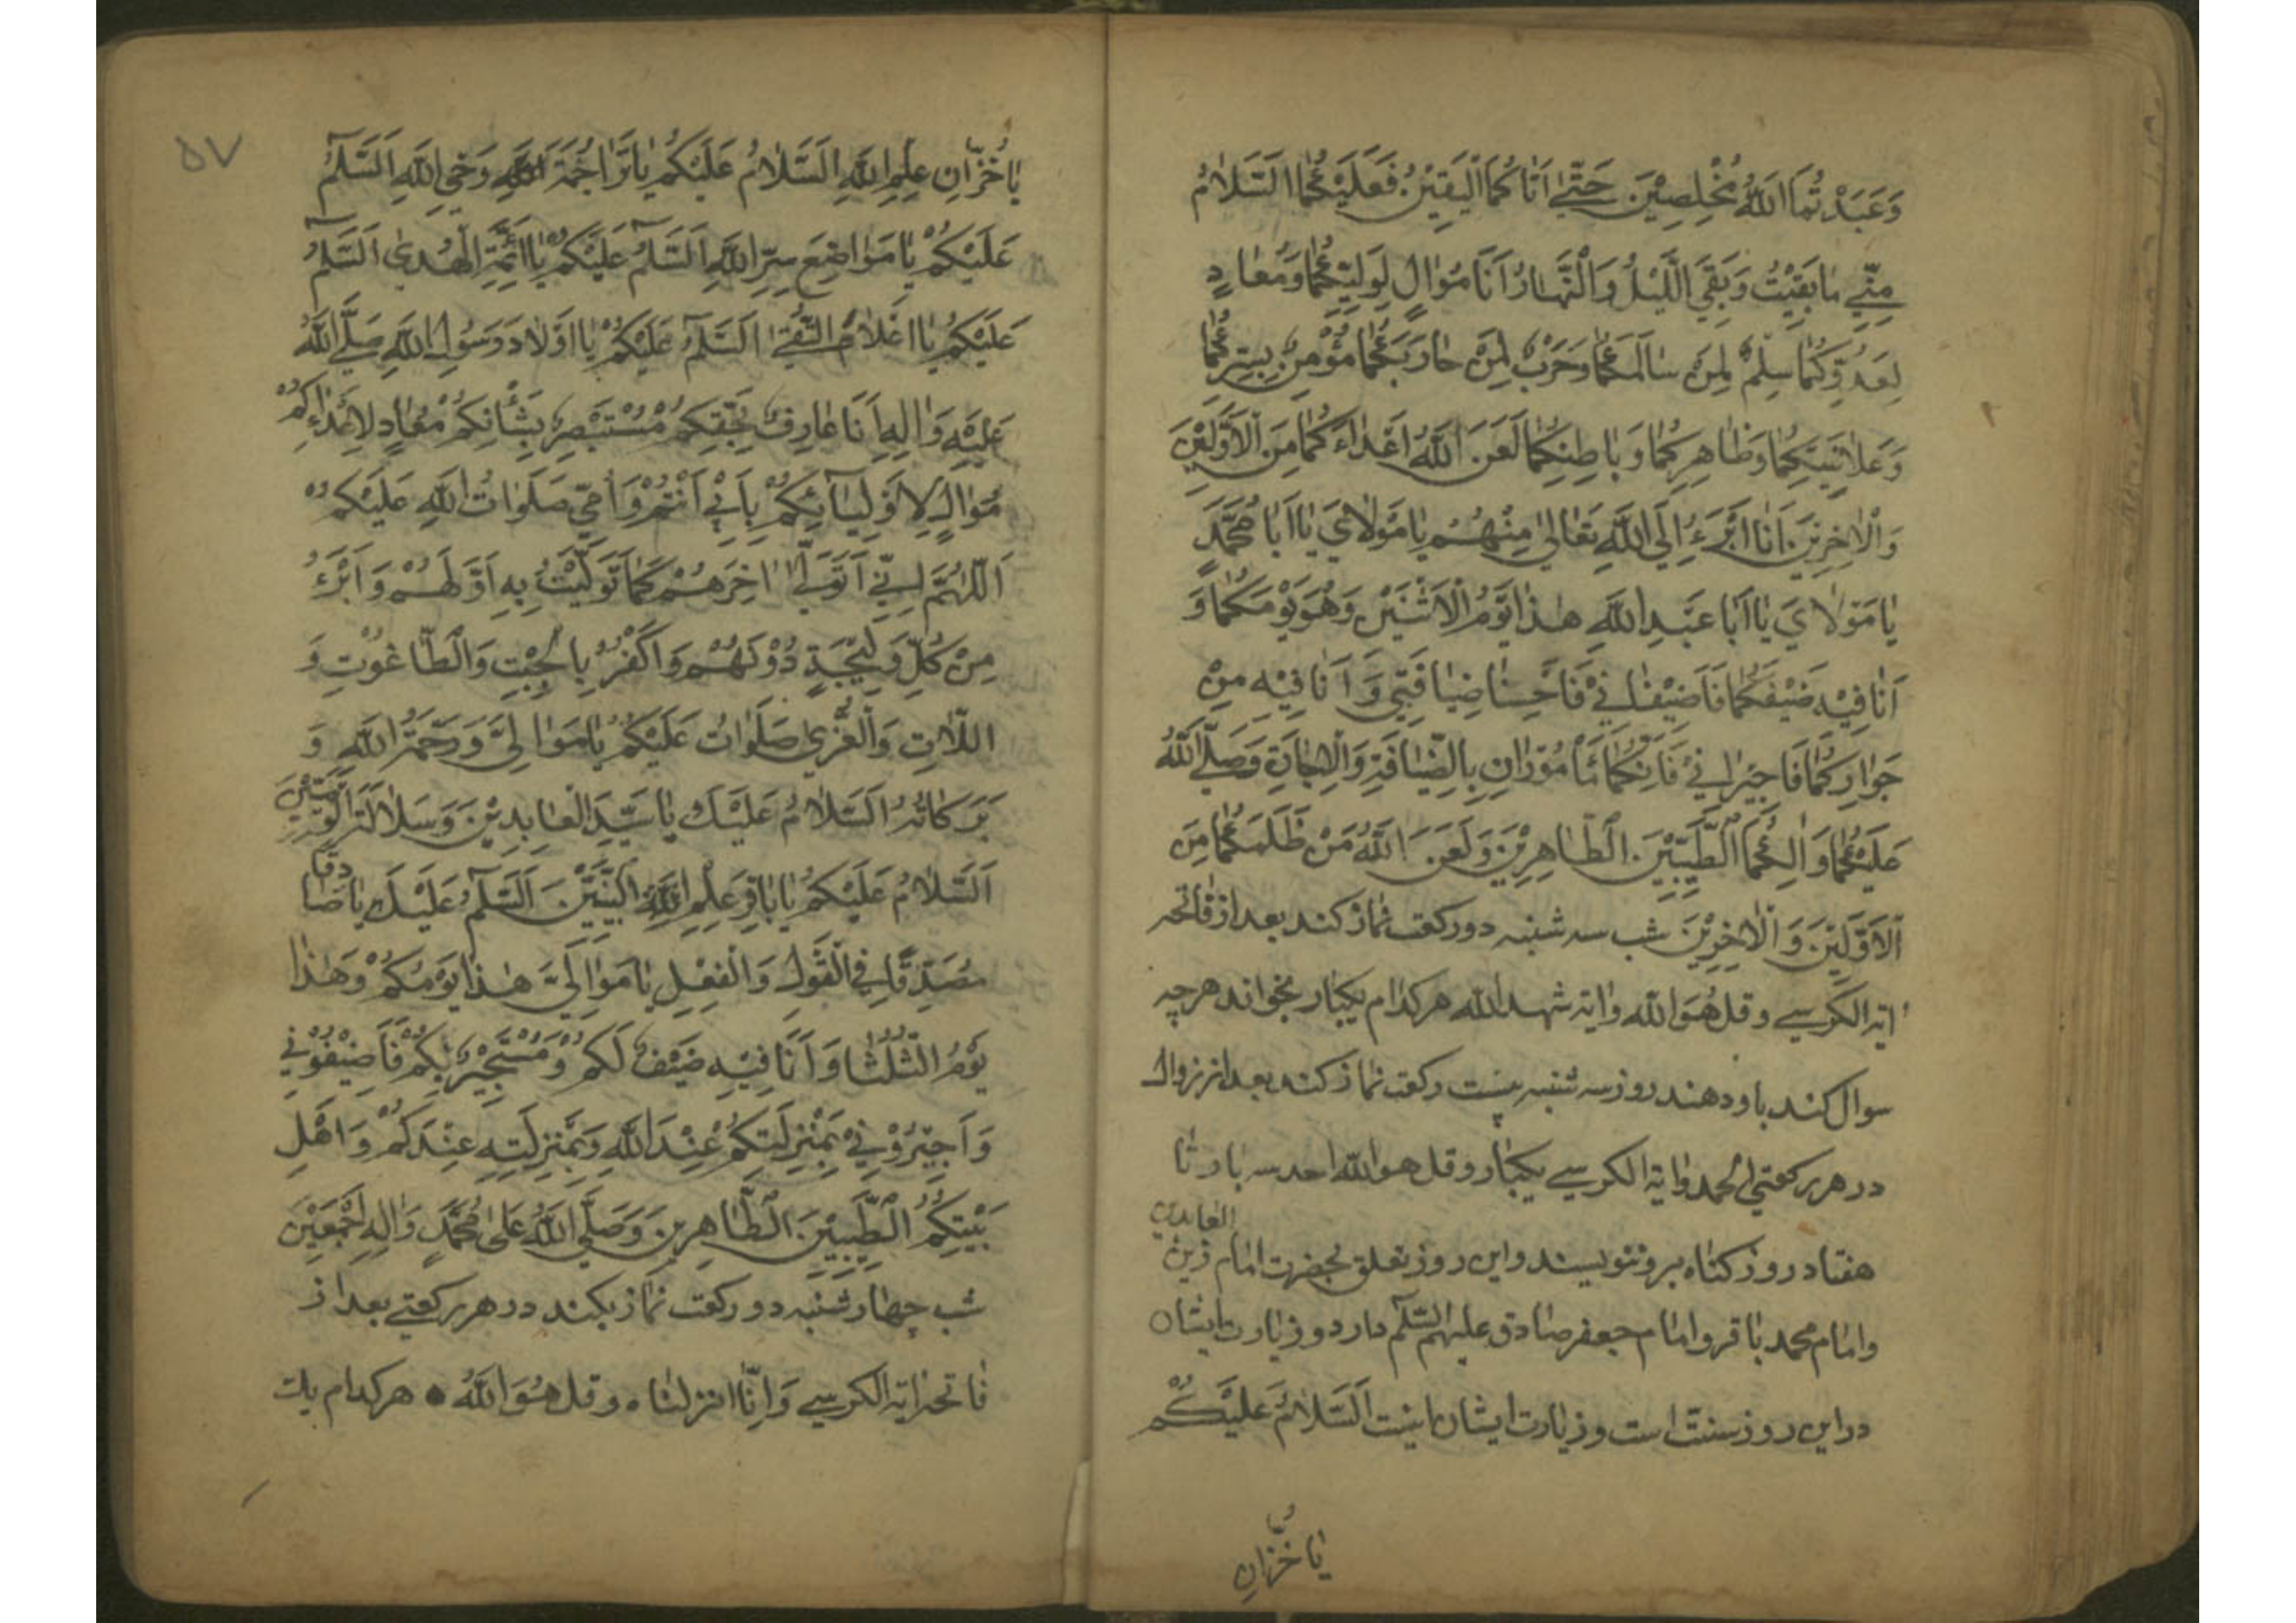 وَعَبَدْتُمَا اللَّهَ مُخْلِصِيْنَ حَتّٰى اَتَاكُمَا الْيَقِيْنُ فَعَلَيْكُمَا السَّلَامُ
مِنّيِ مٰا بَقِيْتُ وَبَقِيَ اللَّيْلُ وَالْنَّهٰارُ اَنَا مُوٰالٍ لِوَلِيِّكُمٰا وَمُعٰادٍ
لِعَدُوِّكُمٰا سِلْمٌ لِمَنْ سٰالَمَكُمٰا وَحَرْبٌ لِمَنْ حٰارَبَكُمٰا مُؤْمِنٌ بِسِرِّكُمٰا
وَعَلٰانِيَتِكُمٰا وَظٰاهِرِكُمٰا وَبٰاطِنِكُمٰا لَعَنَ اللَّهُ اَعْدٰاءَكُمٰا مِنَ الْاَوَّلِيْنَ
وَالْاٰخِرِيْنَ اَنَا اَبْرَءُ اِلَى اللَّهِ تَعٰالىٰ مِنْهُمْ يٰا مَوْلٰايَ يٰا اَبٰا مُحَمَّدٍ
يٰا مَوْلٰايَ يٰا اَبٰا عَبْدِ اللَّهِ هٰذٰا يَوْمُ الْاَثْنَيْنِ وَهُوَ يَوْمُكُمٰا وَ
اَنَا فِيْهِ ضَيْفُكُمٰا فَاَضِيْفٰانِيْ فَاَحْسِنٰا ضِيٰافَتِي وَاَنَا فِيْهِ مِنْ
جَوٰارِكُمٰا فَاَجِيْرٰانِيْ فَاِنَّكُمٰا مَأْمُوْرٰانِ بِالضِّيٰافَةِ وَالْاِجٰارَةِ وَصَلَّى اللَّهُ
عَلَيْكُمٰا وَاٰلِكُمَا الطَّيِّبِيْنَ الطّٰاهِرِيْنَ وَلَعَنَ اللَّهُ مَنْ ظَلَمَكُمٰا مِنَ
الْاَوَّلِيْنَ وَالْاٰخِرِيْنَ شب سه شنبه دو ركعت نماز كند بعد از فاتحه
اية الكرسي و قل هُوَ اللّٰه و اية شهد اللّه هر كدام يكبار بخواند هر چه
سوال كند باو دهند روز سه شنبه بيست ركعت نماز كند بعد از زوال
در هر ركعتي الحمد و اية الكرسي يكبار و قل هو اللّه احد سه بار تا
هفتاد روز كناه بر و ننويسند و اين روز تعلق بحضرت امام زين العابدين
و امام محمد باقر و امام جعفر صادق عليهم السّلٰم دارد و زيارت ايشان
در اين روز سنت است و زيارت ايشان اينست اَلسَّلٰامُ عَلَيْكُمْ
يٰا خُزّٰانِ
۵۷
يٰا خُزّٰانَ عِلْمِ اللَّهِ اَلسَّلٰامُ عَلَيْكُمْ يٰا تَرٰاجِمَةَ وَحْيِ اللَّهِ اَلسَّلٰمُ
عَلَيْكُمْ يٰا مَوٰاضِعَ سِرِّ اللَّهِ اَلسَّلٰمُ عَلَيْكُمْ يٰا اَئِمَّةَ الْهُدىٰ اَلسَّلٰمُ
عَلَيْكُمْ يٰا اَعْلٰامَ التُّقىٰ اَلسَّلٰمُ عَلَيْكُمْ يٰا اَوْلٰادَ رَسُوْلِ اللَّهِ صَلَّى اللَّهُ
عَلَيْهِ وَاٰلِهِ اَنَا عٰارِفٌ بِحَقِّكُمْ مُسْتَبْصِرٌ بِشَأْنِكُمْ مُعٰادٍ لِاَعْدٰاءِكُمْ
مُوٰالٍ لِاَوْلِيٰائِكُمْ بِاَبِيْ اَنْتُمْ وَاُمّي صَلَوٰاتُ اللَّهِ عَلَيْكُمْ
اَللّٰهُمَّ اِنّي اَتَوَلّٰى اٰخِرَهُمْ كَمٰا تَوَلَّيْتُ بِهِ اَوَّلَهُمْ وَاَبْرَءُ
مِنْ كُلِّ وَلِيْجَةٍ دُوْنَهُمْ وَاَكْفُرُ بِالْجِبْتِ وَالْطّٰاغُوْتِ وَ
اللّٰاتِ وَالْعُزّىٰ صَلَوٰاتُ عَلَيْكُمْ يٰا مَوٰالِيَّ وَرَحْمَةُ اللَّهِ وَ
بَرَكٰاتُهُ اَلسَّلٰامُ عَلَيْكَ يٰا سَيِّدَ الْعٰابِدِيْنَ وَسَلٰالَةَ الْوَصِيّيْنَ
اَلسَّلٰامُ عَلَيْكُمْ يٰا بٰاقِرَ عِلْمِ النَّبِيّيْنَ اَلسَّلٰمُ عَلَيْكَ يٰا صٰادِقًا
مُصَدِّقًا فِي الْقَوْلِ وَالْفِعْلِ يٰا مَوٰالِيَّ هٰذٰا يَوْمُكُمْ وَهٰذٰا
يَوْمُ الثُّلٰثٰا وَاَنَا فِيْهِ ضَيْفٌ لَكُمْ وَمُسْتَجِيْرٌ بِكُمْ فَاَضِيْفُوْنِي
وَاَجِيْرُوْنِيْ بِمَنْزِلَتِكُمْ عِنْدَ اللَّهِ وَبِمَنْزِلَتِهِ عِنْدَكُمْ وَاَهْلِ
بَيْتِكُمُ الطَّيِّبِيْنَ الطّٰاهِرِيْنَ وَصَلَّى اللَّهُ عَلىٰ مُحَمَّدٍ وَاٰلِهِ اَجْمَعِيْنَ
شب چهارشنبه دو ركعت نماز بكند در هر ركعتي بعد از
فاتحه اية الكرسي وَاِنّٰا انزلناه و قل هُوَ اللّٰهُ هر كدام يك